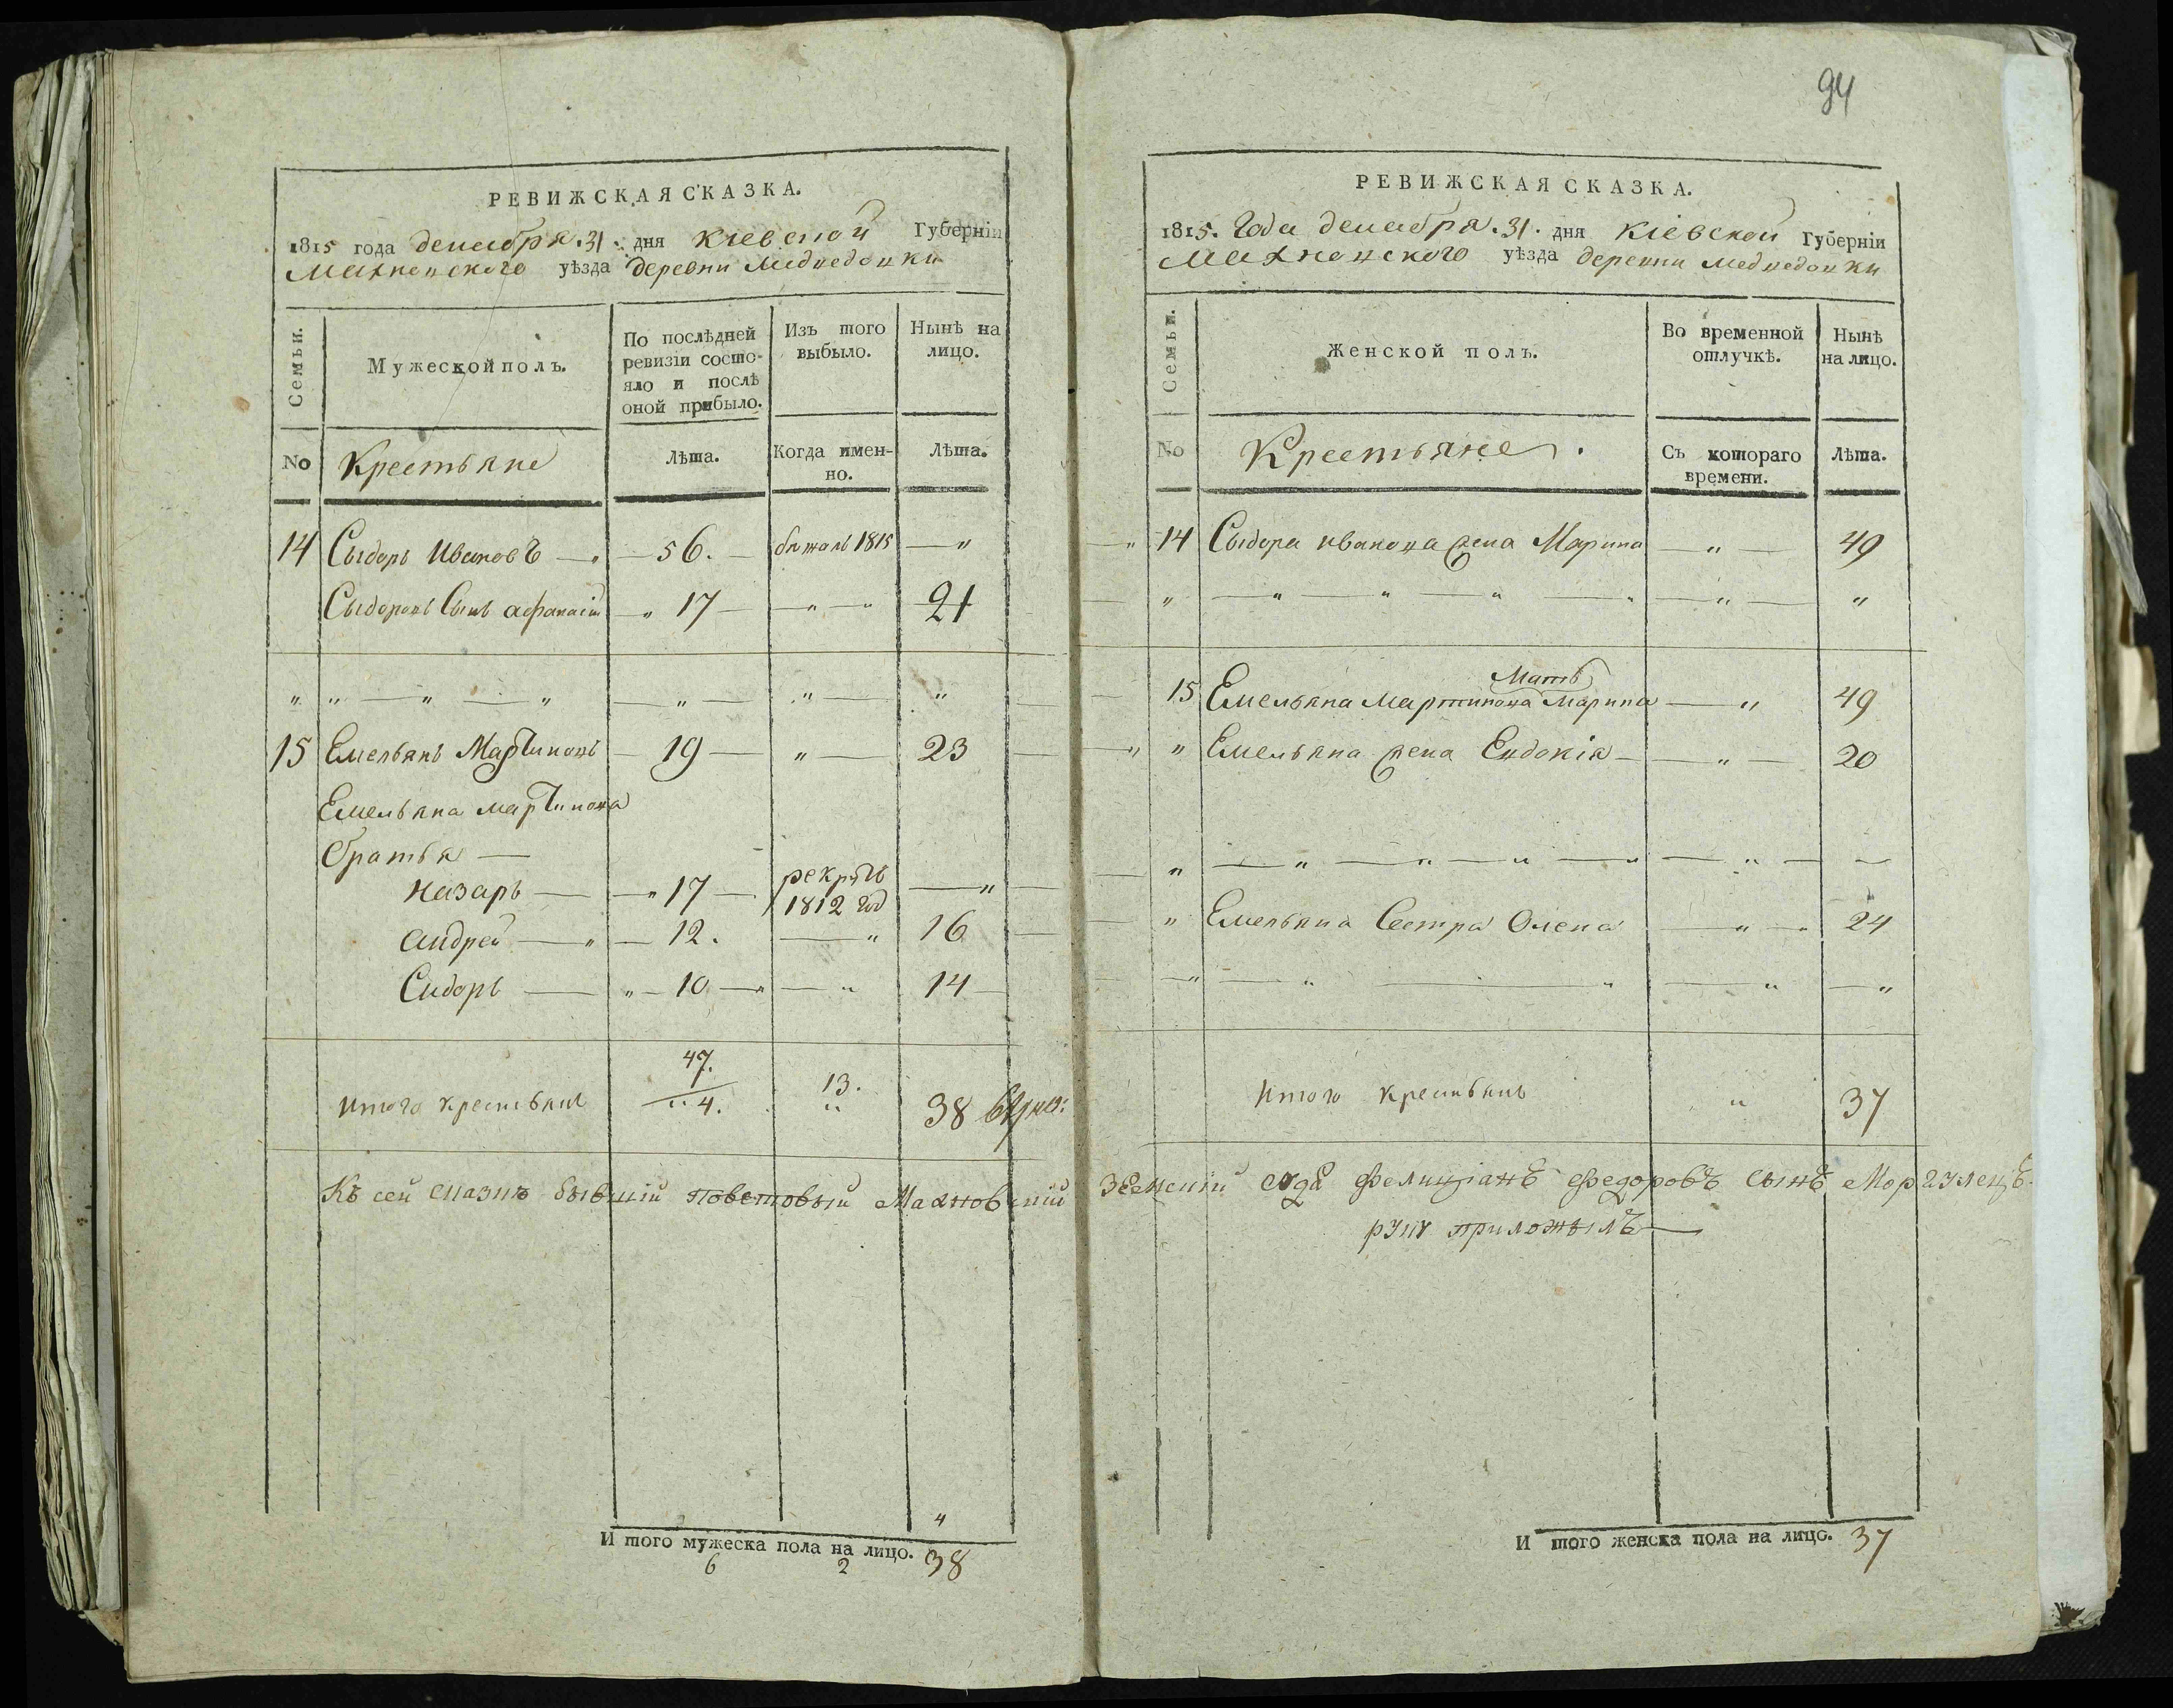 94
РЕВИЖСКАЯ СКАЗКА.
1815 года декабря .31. дня Кіевской Губерніи
Махновского уѣзда деревни Медведовки
Семьи.
Мужеской полъ.
По послѣдней ревизіи состо-
яло и послѣ
оной прибыло.
Изъ того
выбыло.
Нынѣ на
лицо.
No Крестьяне
Лѣта.
Когда имен-
но.
Лѣта.
14 Сыдоръ Ивановъ — 56. — бѣжалъ 1815 — "
Сыдоровъ Сынъ афанасій — " 17 — " — " 21
" " — " — " — " — " — "
15 Емельянъ Мартиновъ — 19 — " — 23
Емельяна мартинова
братья —
назаръ — " 17 — рекрутъ 1812 год — "
андрей — " — 12. — " 16
Сидоръ — " — 10 — " — " 14
Итого крестьянъ 47. 4. 13. " 38
Къ сей сказкѣ бывшій повѣтовый Махновскій
И того мужеска пола на лицо. 38
6 2
РЕВИЖСКАЯ СКАЗКА.
1815. Года декабря .31. дня Кіевской Губерніи
Махновского уѣзда деревни Медведовки
Семьи.
Женской полъ.
Во временной
отлучкѣ.
Нынѣ
на лицо.
No Крестьяне.
Съ котораго
времени.
Лѣта.
14 Сыдора иванова жена Марина — " — 49
" — " — " — " — " — " — "
Мать
15 Емельяна Мартинова Марина — " 49
" Емельяна жена Евдокія — " — 20
" — " — " — " — " — " — —
" Емельяна Сестра Олена — " — " 24
— " — " — " — " — "
Итого крестьянъ " 37
Земскій судя Фелиціанъ Федоровъ сынъ Моргулецъ
руку приложылъ —
И того женска пола на лицо. 37